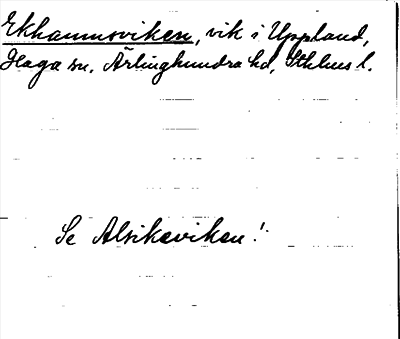 Ekhamnsviken, vik i Uppland,
Haga sn. Ärlinghundra hd, Sthlms l.
Se Alsikeviken!